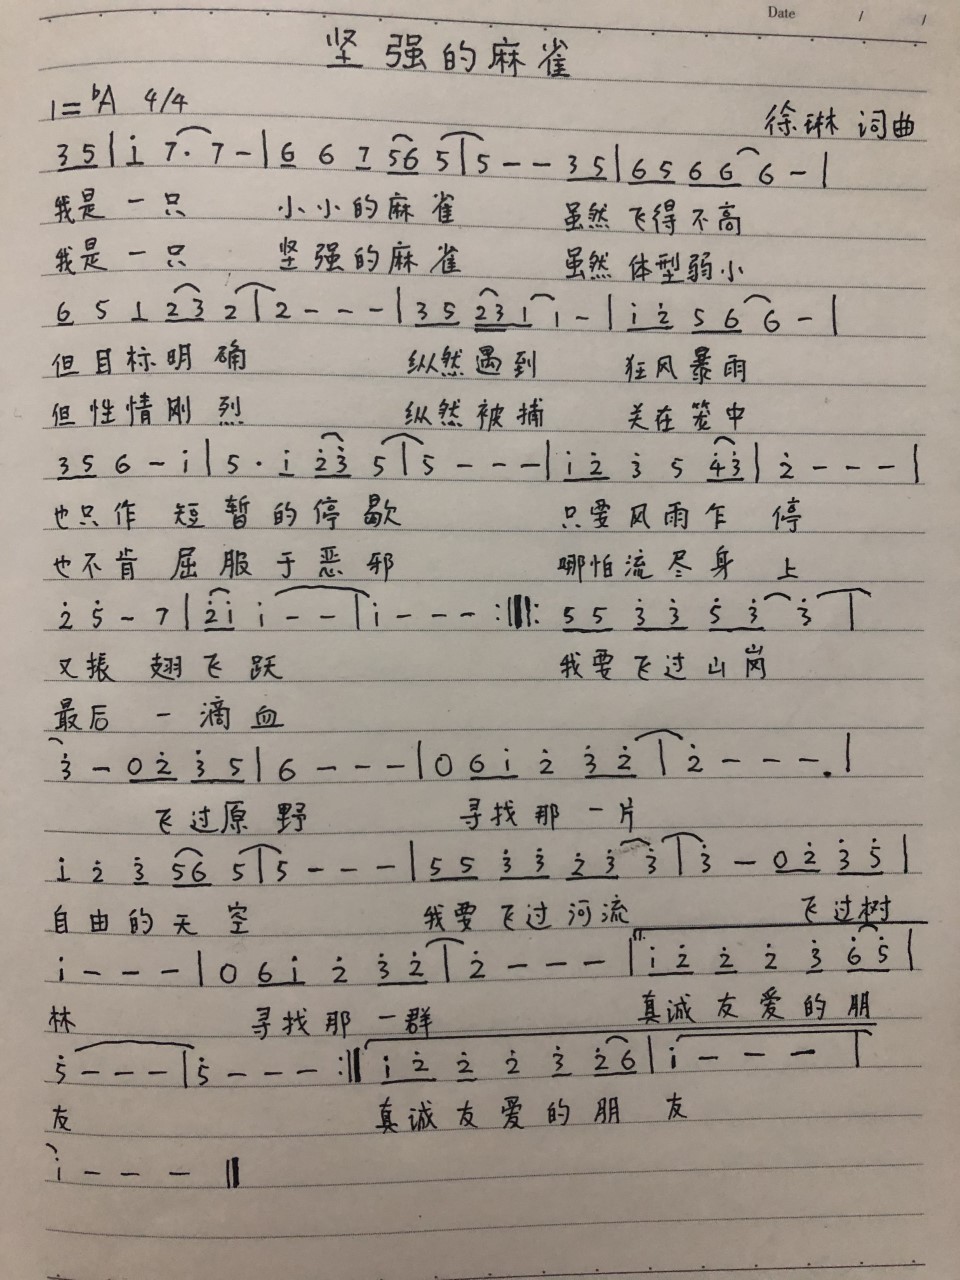 Date / /
坚强的麻雀
1=ᵇA 4/4
徐琳 词曲
3 5 | i 7· 7 - | 6 6 7 56 5 | 5 - - 3 5 | 6 5 6 6 6 - |
我是一只 小小的麻雀 虽然飞得不高
我是一只 坚强的麻雀 虽然体型弱小
6 5 1 23 2 | 2 - - - | 3 5 23 1 i - | i 2̇ 5 6 6 - |
但目标明确 纵然遇到 狂风暴雨
但性情刚烈 纵然被捕 关在笼中
3 5 6 - i | 5 · i 2̇3̇ 5 | 5 - - - | i 2̇ 3̇ 5 4̇3̇ | 2̇ - - - |
也只作短暂的停歇 只要风雨乍停
也不肯屈服于恶邪 哪怕流尽身上
2̇ 5̇ - 7 | 2̇i i - - | i - - - :||: 5 5 3̇ 3̇ 5̇ 3̇ 3̇ |
又振翅飞跃 我要飞过山岗
最后一滴血
3̇ - 0 2̇ 3̇ 5 | 6 - - - | 0 6 i 2̇ 3̇ 2̇ | 2̇ - - - . |
飞过原野 寻找那一片
i 2̇ 3̇ 56 5 | 5 - - - | 5 5 3̇ 3̇ 2̇ 3̇ 3̇ | 3̇ - 0 2̇ 3̇ 5̇ |
自由的天空 我要飞过河流 飞过树
i - - - | 0 6 i 2̇ 3̇ 2̇ | 2̇ - - - | i 2̇ 2̇ 2̇ 3̇ 6̇5̇ |
林 寻找那一群 真诚友爱的朋
5̇ - - - | 5̇ - - - :|| i 2̇ 2̇ 2̇ 3̇ 2̇6 | i - - - |
友 真诚友爱的朋友
i - - - ||